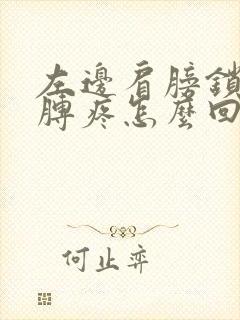 左邊肩膀鎖
膊疼怎麼回
何止弈